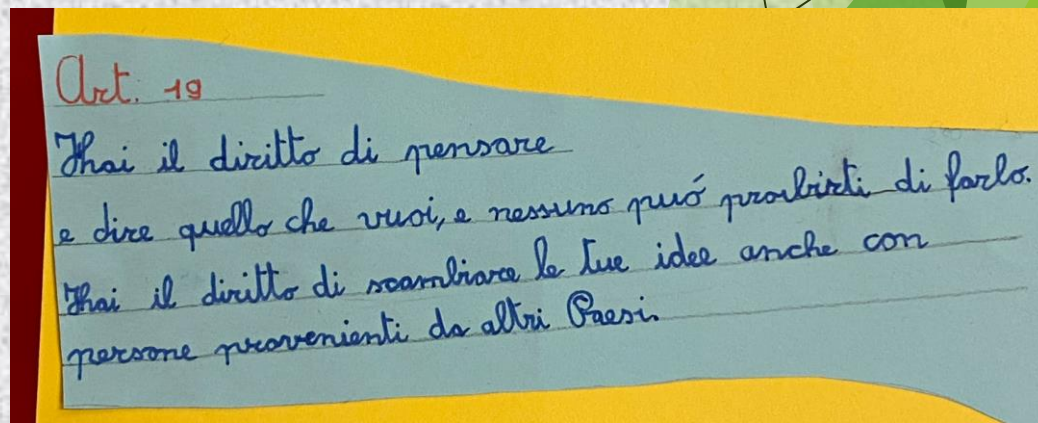 Art. 19
Hai il diritto di pensare
e dire quello che vuoi, e nessuno puó proibirti di farlo.
Hai il diritto di scambiare le tue idee anche con
persone provenienti da altri Paesi.